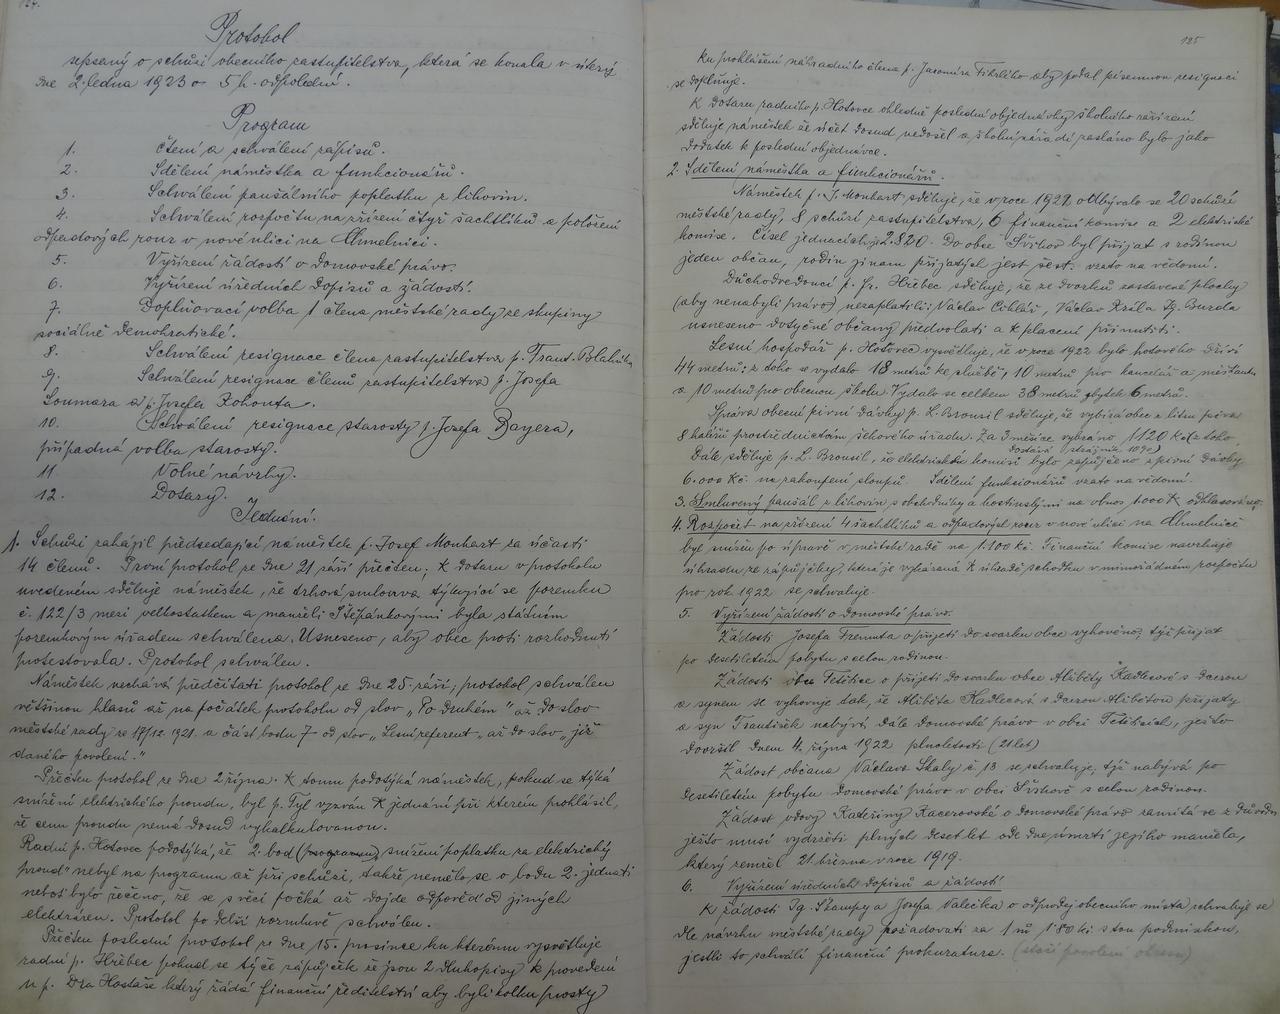 124.
Protokol
sepsaný o schůzi obecního zastupitelstva, která se konala v úterý
dne 2. ledna 1923 o 5 h. odpolední.
Program
1. Čtení a schválení zápisů.
2. Sdělení náměstka a funkcionářů.
3. Schválení paušálního poplatku z lihovin.
4. Schválení rozpočtu na zřízení čtyř šachtliků a položení
odpadových rour v nové ulici na Chmelnici.
5. Vyřízení žádostí o domovské právo.
6. Vyřízení úředních dopisů a žádostí.
7. Doplňovací volba 1 člena městské rady ze skupiny
sociálně demokratické.
8. Schválení resignace člena zastupitelstva p. Frant. Blahníka
9. Schválení resignace členů zastupitelstva p. Josefa
Soumara a p. Josefa Kohouta.
10. Schválení resignace starosty p. Josefa Bayera,
případná volba starosty.
11. Volné návrhy.
12. Dotazy.
Jednání.
1. Schůzi zahájil předsedající náměstek p. Josef Monhart za účasti
14 členů. První protokol ze dne 21 září přečten; K dotazu v protokolu
uvedeném sděluje náměstek, že trhová smlouva týkající se pozemku
č. 122/3 mezi velkostatkem a manželi Štěpánkovými byla státním
pozemkovým úřadem schválena. Usneseno, aby obec proti rozhodnutí
protestovala. Protokol schválen.
Náměstek nechává předčítati protokol ze dne 25. září; protokol schválen
většinou hlasů až na počátek protokolu od slov „Po druhém" až do slov
městské rady ze 17/12. 1921. a část bodu 7 od slov „Lesní referent" až do slov „již
daného povolení."
Přečten protokol ze dne 2 října. K tomu podotýká náměstek, pokud se týká
snížení elektrického proudu, byl p. Tyl vyzván K jednání při kterém prohlásil,
že cenu proudu nemá dosud vykalkulovanou.
Radní p. Hotovec podotýká, že 2. bod (programu) „snížení poplatku za elektrický
proud" nebyl na programu až při schůzi, takže nemělo se o bodu 2. jednati
neboť bylo řečeno, že se s věcí počká až dojde odpověď od jiných
elektráren. Protokol po delší rozmluvě schválen.
Přečten poslední protokol ze dne 15. prosince ku kterému vysvětluje
radní p. Hřebec pokud se týče zápůjček že jsou 2 dluhopisy k provedení
u p. Dra Hostaše který žádá finanční ředitelství aby byli kolku prosty
125
ku prohlášení náhradního člena p. Jaromíra Fihrliho aby podal písemnou resignaci
se doplňuje.
K dotazu radního p. Hotovce ohledně poslední objednávky školního zařízení
sděluje náměstek že účet dosud nedošel a školní zařízení zasláno bylo jako
dodatek k poslední objednávce.
2. Sdělení náměstka a funkcionářů.
Náměstek p. J. Monhart sděluje, že v roce 1922 odbývalo se 20 schůzí
městské rady, 8 schůzí zastupitelstva, 6 finanční komise a 2 elektrické
komise. Čísel jednacích je 2.820. Do obce Švihov byl přijat s rodinou
jeden občan, rodin jinam přijatých jest šest. vzato na vědomí.
Důchodvedoucí p. Fr. Hřebec sděluje, že ze dvorků zastavené plochy
(aby nenabyli právo) nezaplatili: Václav Cihlář, Václav Král a Ig. Burda
usneseno dotyčné občany předvolati a k placení přinutiti.
Lesní hospodář p. Hotovec vysvětluje, že v roce 1922 bylo hotového dříví
44 metrů; z toho se vydalo 18 metrů ke službě, 10 metrů pro kancelář a měšťanku
a 10 metrů pro obecnou školu. Vydalo se celkem 38 metrů zbytek 6 metrů.
Správa obecní pivní dávky p. L. Brousil sděluje, že vybírá obec z litru piva
8 haléřů prostřednictvím šekového úřadu. Za 3 měsíce vybráno 1120 Kč (z toho
dostává strážník 10%)
Dále sděluje p. L. Brousil, že elektrickou komisí bylo zapůjčeno z pivní dávky
6.000 Kč na zakoupení sloupů. Sdělení funkcionářů vzato na vědomí.
3. Smluvený paušál z lihovin s obchodníky a hostinskými na obnos 1.000 K odhlasován.
4. Rozpočet na zřízení 4 šachtliků a odpadových rour v nové ulici na Chmelnici
byl snížen po úpravě v městské radě na 1.100 Kč. Finanční komise navrhuje
úhradu ze zápůjčky, která je vykázaná K úhradě schodku v mimořádném rozpočtu
pro rok 1922 se schvaluje.
5. Vyřízení žádostí o domovské právo.
Žádosti Josefa Tremta o přijetí do svazku obce vyhověno; týž přijat
po desetiletém pobytu s celou rodinou.
Žádosti obce Tetětice o přijetí do svazku obce Alžběty Kadlecové s dcerou
a synem se vyhovuje tak, že Alžběta Kadlecová s dcerou Alžbětou přijaty
a syn František nabývá dále domovské právo v obci Tetěticích, ježto
dovršil dnem 4. října 1922 plnoletosti (21 let)
Žádost občana Václava Skaly č 13 se schvaluje, týž nabývá po
desetiletém pobytu domovské právo v obci Švihově s celou rodinou.
Žádost vdovy Kateřiny Kacerovské o domovské právo zamítá se z důvodu
ježto musí vydržeti plných deset let ode dne úmrtí jejího manžela,
který zemřel 21. března v roce 1919.
6. Vyřízení úředních dopisů a žádostí
K žádosti Ig. Škampy a Josefa Valečka o odprodej obecního místa schvaluje se
dle návrhu městské rady požadovati za 1 m² 1.80 Kč s tou podmínkou,
jestli to schválí finanční prokuratura. (stačí povolení okresu)